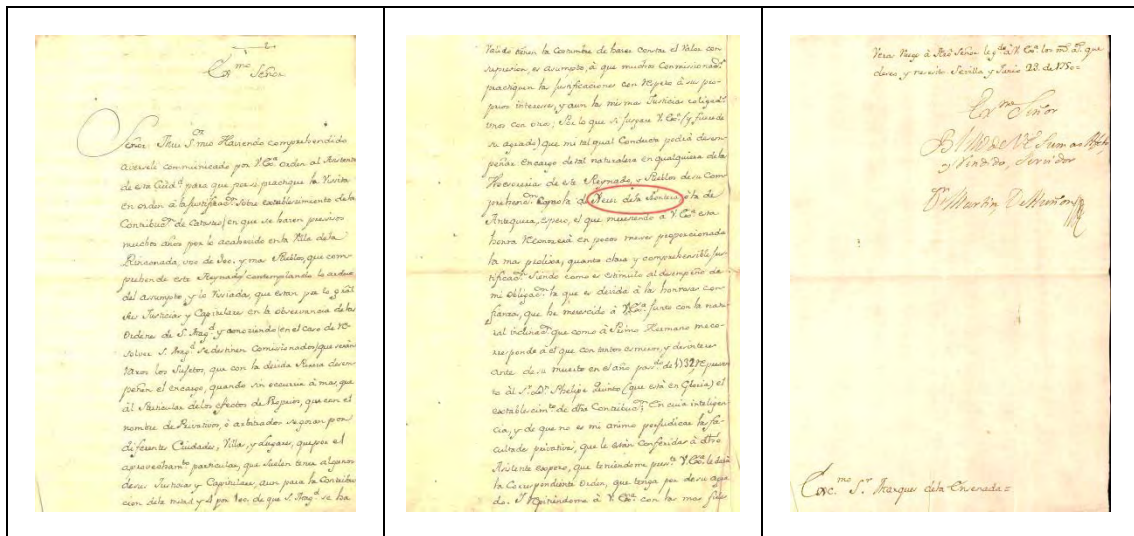 Ex.mo Señor
Señor. Mui S.or mio Haviendo comprehendido
averseli communicado por V. Ex.a orden al Asistente
de esta Ciud.d para que por si, practique la Visita
en orden à la justificaz.on sobre establecimiento de la
Contribuz.on de Catastro, en que se hazen precisos
muchos años por lo acahecido en la Villa de la
Rinconada, vno de 300. y mas Pueblos, que com
prehende este Reynado, contemplando lo arduo
del assumpto y lo viciada, que estan por lo gral
las Justicias y Capitulares en la observancia de las
Ordenes de S. Mag.d y
solver S. Mag.d se destinen Comisionados, que serán
raros los Sujetos, que con la devida Pureza desem
peñen el encargo, quando sin ocurrir à mas, que
àl Particular de los efectos de Propios, que con el
nombre de Privativos, ò arbitrados se gozan por
diferentes Ciudades, Villas, y Lugares, que por el
aprovecham.to particular, que suelen tener algunos
de sus Justicias y Capitulares, aun para la Contribu
cion de la moial y 4 por 100. de que S. Mag.d se ha
Valido tienen la Costumbre de hazer constar el Valor con
supresion, es asumpto, à que muchos Commissionad.s
practiquen las justificaciones con respeto à sus pro
prios intereses, y aun las mismas Justicias coligad.s
vnos con otros; Por lo que si juzgare V. Ex.a (y fuere de
su agrado) que mi tal qual Conducta podrá desem
peñar Encargo de tal naturaleza en qualquiera de las
Thesorerias de este Reynado, y Pueblos de su Com
prehens.on Española de Xerez de la Frontera ò la de
Antequera, espero, el que mereciendo à V. Ex.a esta
honra reconozerá en pocos meses proporcionado
la mas prolixa, quanta clara y comprehensible jus
tificaz.on Siendo como es estimulo al desempeño de
mi obligaz.on la que es devida à las honrosas con
fianzas, que he merecido à V. Ex.a junto con la natu
ral inclinaz.on que como à Primo Hermano me co
rresponde à el que con tantos esmeros, y desinteres
ante de su muerte en el año pas.do de 1732 represen
to àl S.or D.n Phelipe Quinto (que està en Gloria) el
establecim.to de dha Contribuz.on; En cuia inteligen
cia, y de que no es mi animo perjudicar las fa
cultades privativas, que le están conferidas à dho
Asistente espero, que teniendome pres.te V. Ex.a le dará
la Correspondiente Orden, que tenga por de su agra
do. Y repitiendome à V. Ex.a con la mas fina
Vera Ruego à Ntro Señor le g.de à V. Ex.a los m.s a.s que
deseo y necesito. Sevilla y Junio 23. de 1750=
Ex.mo Señor
BLM de V.E. su mas Afecto,
y Rendido, Servidor
D.n Martin
Exc.mo S.r Marques de la Ensenada=